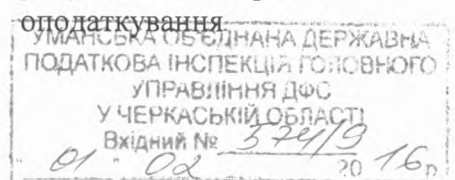 оподаткування
УМАНСЬКА ОБ'ЄДНАНА ДЕРЖАВНА
ПОДАТКОВА ІНСПЕКЦІЯ ГОЛОВНОГО
УПРАВЛІННЯ ДФС
У ЧЕРКАСЬКІЙ ОБЛАСТІ
Вхідний № 574/9
"01" 02 2016р